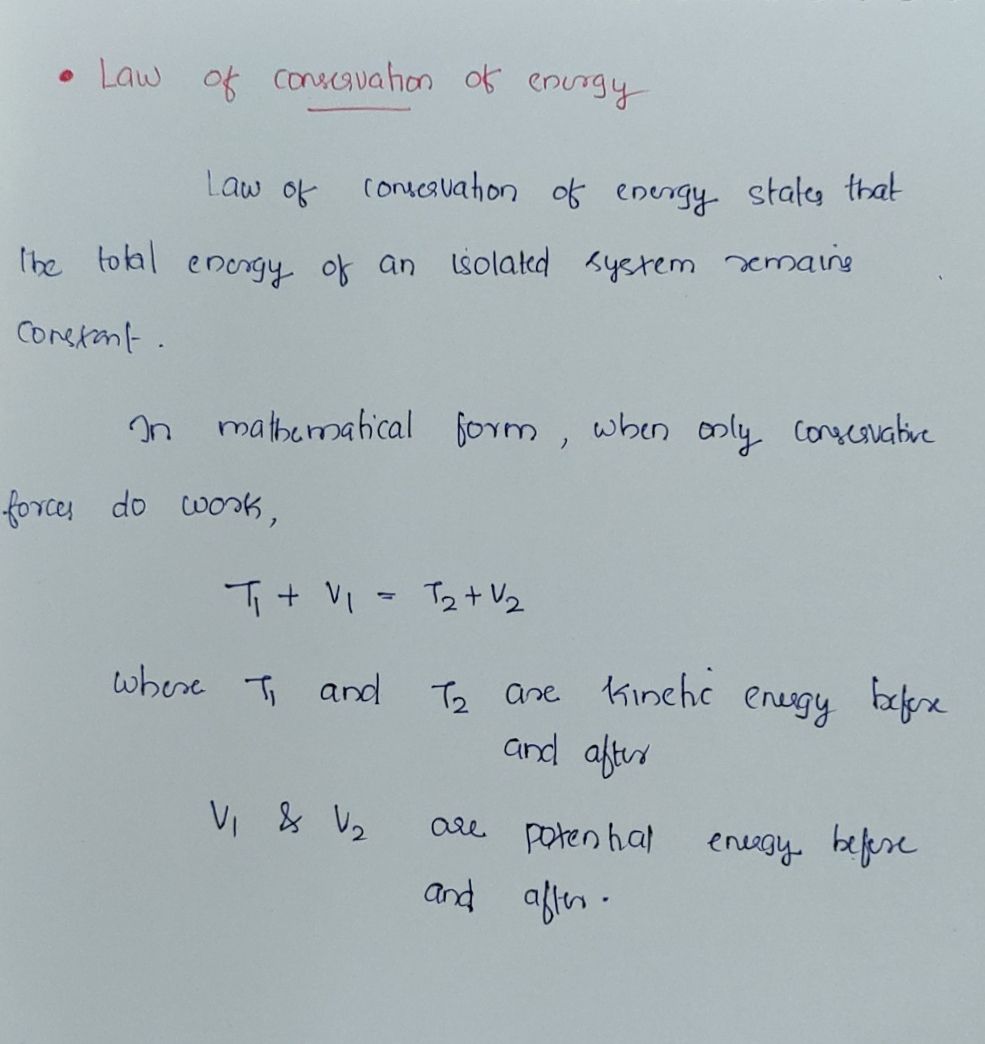 • Law of conservation of energy
Law of conservation of energy states that
the total energy of an isolated system remains
constant.
In mathematical form, when only conservative
forces do work,
T₁ + V₁ = T₂ + V₂
where T₁ and T₂ are kinetic energy before
and after
V₁ & V₂ are potential energy before
and after.